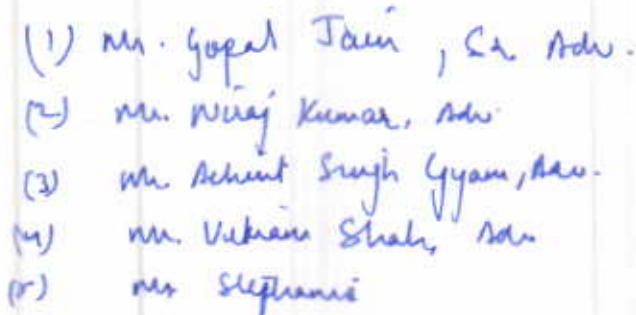 (1) Mr. Gopal Jain, Sr. Adv.
(2) Mr. Niraj Kumar, Adv.
(3) Mr. Achint Singh Gyani, Adv.
(4) Mr. Vikram Shah, Adv.
(5) Ms Stephanie